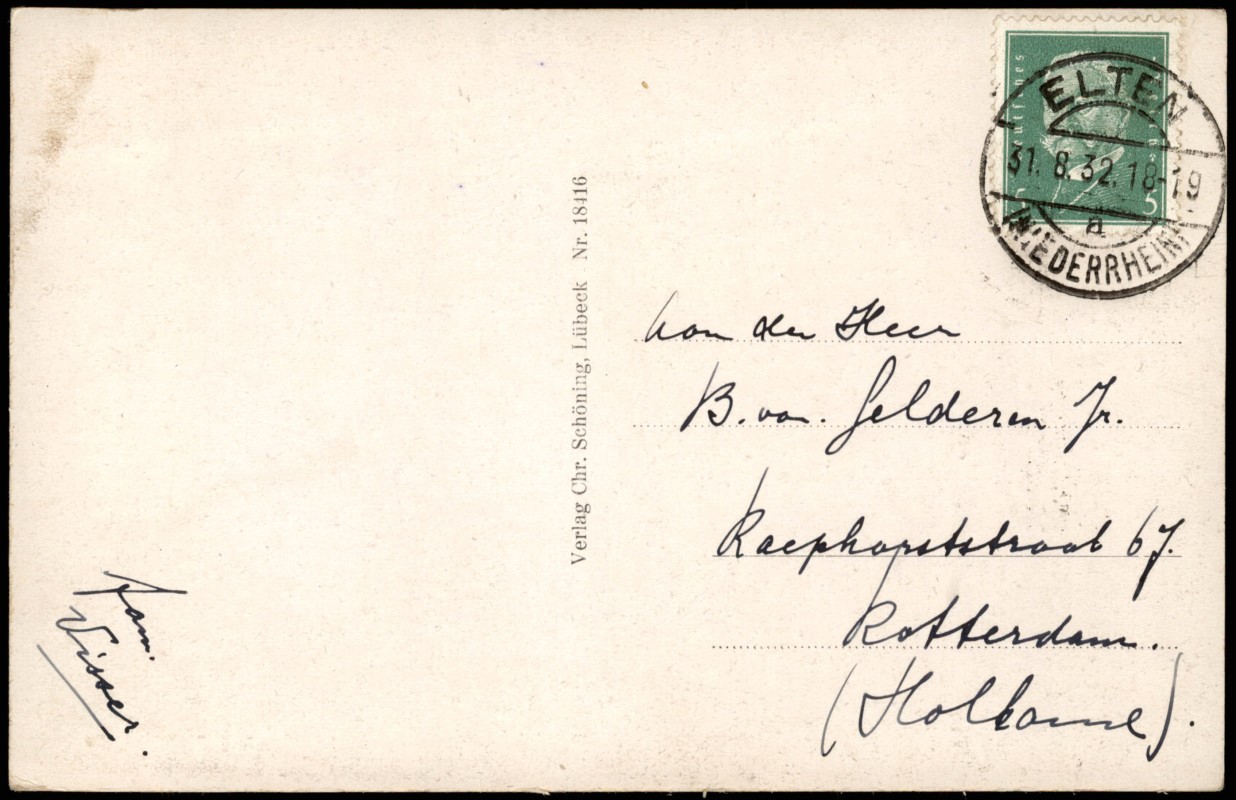 ELTEN
31.8.32.18-19
a
(NIEDERRHEIN)
5
Verlag Chr. Schöning, Lübeck Nr. 18416
den Heer
B. van Gelderen Jr.
Raephorststraat 67.
Rotterdam.
(Holland).
Fam.
Visser.